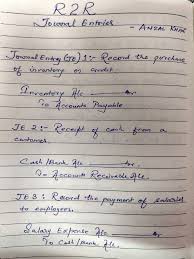 R2R
Journal Entries
- ANZAL KHAN
Journal Entry (JE) 1:- Record the purchase
of inventory on credit.
Inventory A/c ——— Dr
To Accounts Payable
JE 2:- Receipt of cash from a
customer.
Cash/Bank A/c ——— Dr
To Accounts Receivable A/c
JE 3: Record the payment of salaries
to employees.
Salary Expense A/c ——— Dr
To Cash/Bank A/c